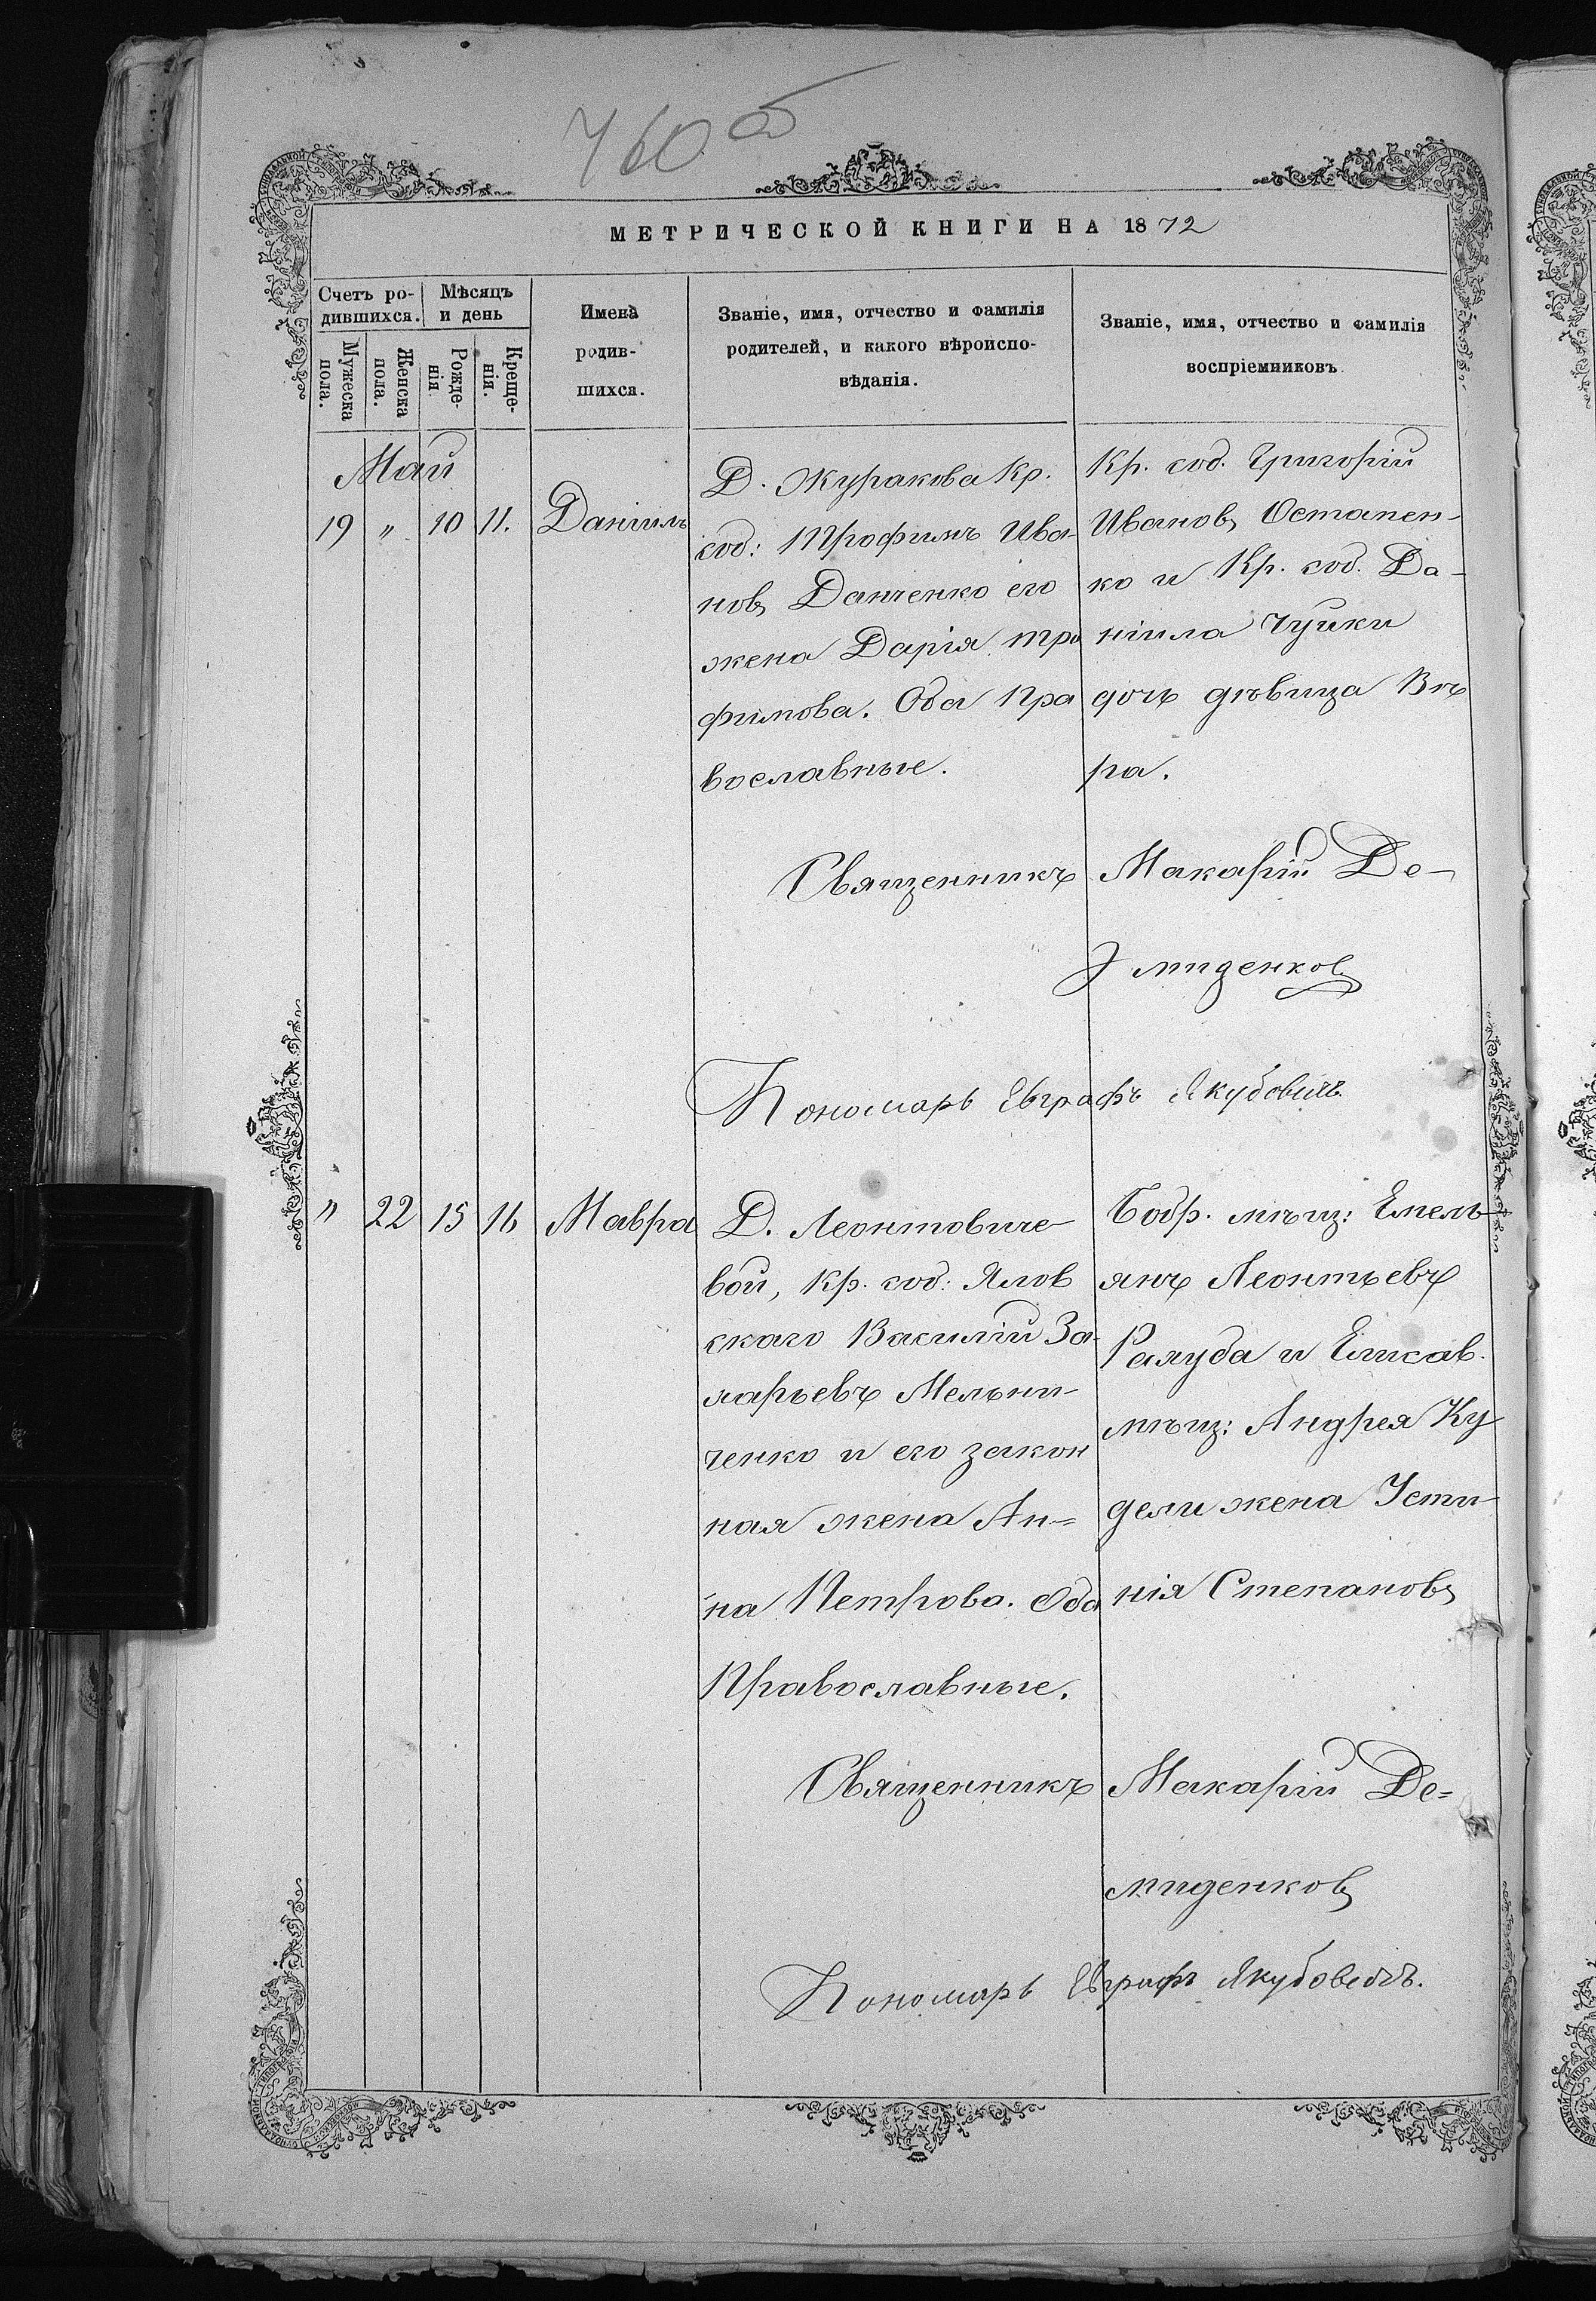 760 об
МЕТРИЧЕСКОЙ КНИГИ НА 1872
Счетъ ро-
дившихся.
Мѣсяцъ
и день
Мужеска
пола.
Женска
пола.
Рожде-
нія.
Креще-
нія.
Имена
родив-
шихся.
Званіе, имя, отчество и фамилія
родителей, и какого вѣроиспо-
вѣданія.
Званіе, имя, отчество и фамилія
воспріемниковъ.
Май
19 " 10 11. Даніилъ
Д. Журакова Кр.
соб: Трофимъ Ива-
новъ Данченко его
жена Дарія Тро
фимова. Оба Пра
вославные.
Кр. соб. Григорій
Ивановъ Остапен-
ко и Кр. соб. Да-
ніила Чуйки
дочь дѣвица Вѣ
ра.
Священникъ Макарій Де-
миденковъ
Пономарь Евграфъ Якубовичъ.
" 22 15 16 Мавра
Д. Леонтовиче-
вой, Кр. соб: Ялов
скаго Василій За-
харьевъ Мельни-
ченко и его закон
ная жена Ан=
на Петрова. Оба
Православные.
Бобр. мѣщ: Емель-
янъ Леонтьевъ
Галуба и Елисав.
мѣщ: Андрея Ку
дели жена Усти-
нія Степановъ
Священникъ Макарій Де=
миденковъ
Пономарь Евграфъ Якубовичъ.